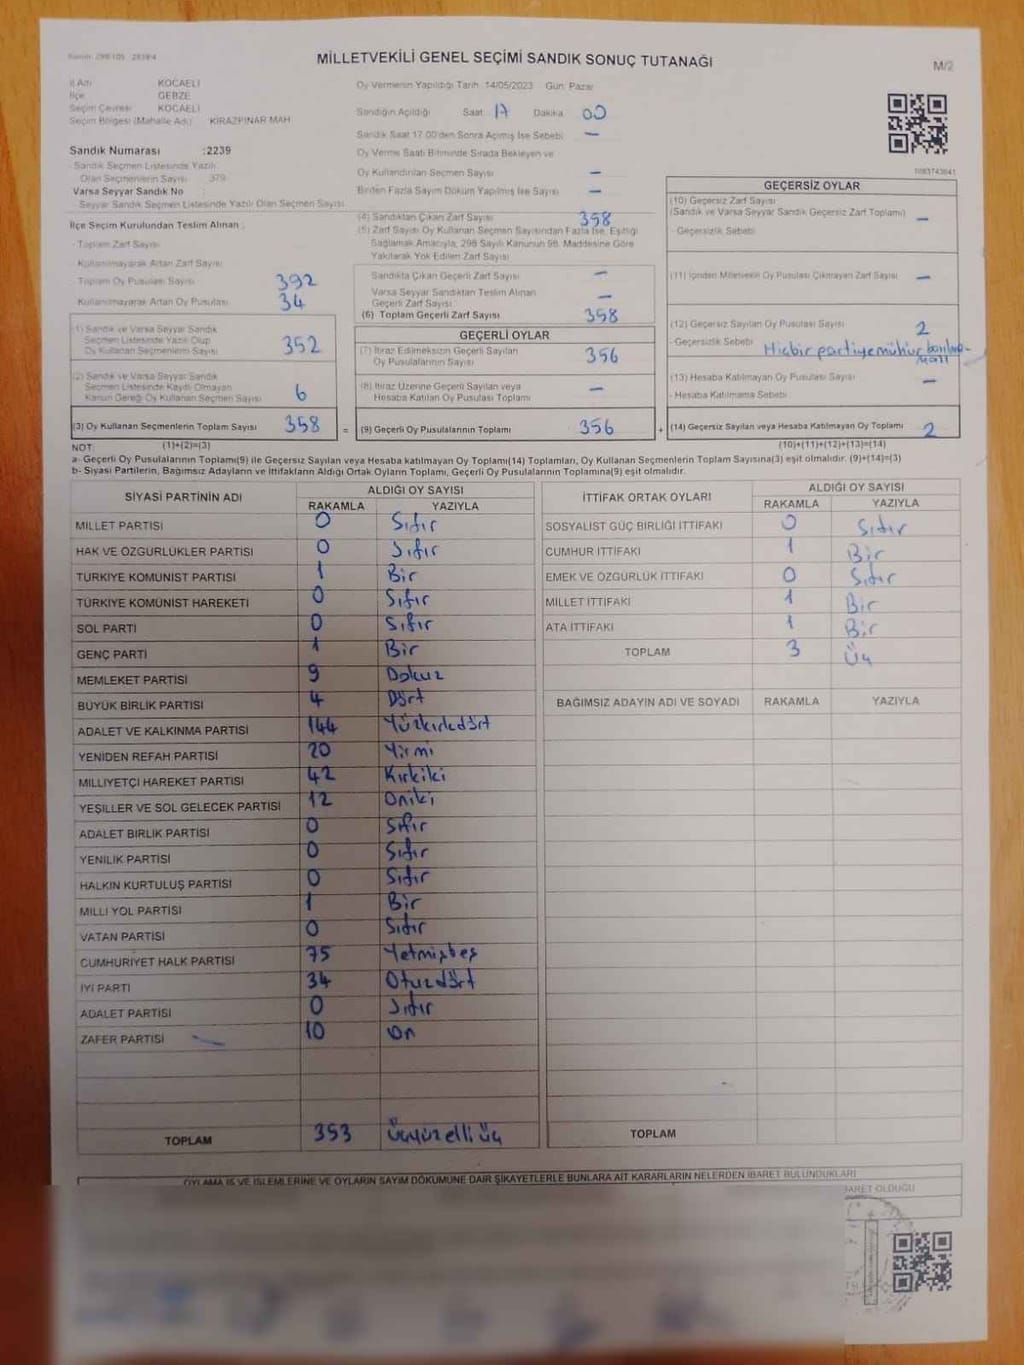 MİLLETVEKİLİ GENEL SEÇİMİ SANDIK SONUÇ TUTANAĞI
M/2
İl Adı KOCAELİ
İlçe GEBZE
Seçim Çevresi KOCAELİ
Seçim Bölgesi (Mahalle Adı) KİRAZPINAR MAH
Sandık Numarası :2239
- Sandık Seçmen Listesinde Yazılı
Olan Seçmenlerin Sayısı 379
Varsa Seyyar Sandık No :
- Seyyar Sandık Seçmen Listesinde Yazılı Olan Seçmen Sayısı
Oy Vermenin Yapıldığı Tarih :14/05/2023 Gün: Pazar
Sandığın Açıldığı Saat 17 Dakika 00
Sandık Saat 17.00'den Sonra Açılmış İse Sebebi —
Oy Verme Saati Bitiminde Sırada Bekleyen ve
Oy Kullandırılan Seçmen Sayısı —
Birden Fazla Sayım Döküm Yapılmış İse Sayısı —
İlçe Seçim Kurulundan Teslim Alınan :
- Toplam Zarf Sayısı
- Kullanılmayarak Artan Zarf Sayısı
- Toplam Oy Pusulası Sayısı 392
Kullanılmayarak Artan Oy Pusulası 34
(1) Sandık ve Varsa Seyyar Sandık
Seçmen Listesinde Yazılı Olup
Oy Kullanan Seçmenlerin Sayısı 352
(2) Sandık ve Varsa Seyyar Sandık
Seçmen Listesinde Kaydı Olmayan
Kanun Gereği Oy Kullanan Seçmen Sayısı 6
(3) Oy Kullanan Seçmenlerin Toplam Sayısı 358 =
(4) Sandıktan Çıkan Zarf Sayısı 358
(5) Zarf Sayısı Oy Kullanan Seçmen Sayısından Fazla İse, Eşitliği
Sağlamak Amacıyla, 298 Sayılı Kanunun 98. Maddesine Göre
Yakılarak Yok Edilen Zarf Sayısı
Sandıkta Çıkan Geçerli Zarf Sayısı —
Varsa Seyyar Sandıktan Teslim Alınan
Geçerli Zarf Sayısı —
(6) Toplam Geçerli Zarf Sayısı 358
GEÇERLİ OYLAR
(7) İtiraz Edilmeksizin Geçerli Sayılan
Oy Pusulalarının Sayısı 356
(8) İtiraz Üzerine Geçerli Sayılan veya
Hesaba Katılan Oy Pusulası Toplamı —
(9) Geçerli Oy Pusulalarının Toplamı 356 +
1083743841
GEÇERSİZ OYLAR
(10) Geçersiz Zarf Sayısı
(Sandık ve Varsa Seyyar Sandık Geçersiz Zarf Toplamı) —
- Geçersizlik Sebebi
(11) İçinden Milletvekili Oy Pusulası Çıkmayan Zarf Sayısı —
(12) Geçersiz Sayılan Oy Pusulası Sayısı 2
-Geçersizlik Sebebi Hiçbir partiye mühür
(13) Hesaba Katılmayan Oy Pusulası Sayısı —
- Hesaba Katılmama Sebebi
(14) Geçersiz Sayılan veya Hesaba Katılmayan Oy Toplamı 2
NOT: (1)+(2)=(3) (10)+(11)+(12)+(13)=(14)
a- Geçerli Oy Pusulalarının Toplamı(9) ile Geçersiz Sayılan veya Hesaba katılmayan Oy Toplamı(14) Toplamları, Oy Kullanan Seçmenlerin Toplam Sayısına(3) eşit olmalıdır. (9)+(14)=(3)
b- Siyasi Partilerin, Bağımsız Adayların ve İttifakların Aldığı Ortak Oyların Toplamı, Geçerli Oy Pusulalarının Toplamına(9) eşit olmalıdır.
SİYASİ PARTİNİN ADI ALDIĞI OY SAYISI
RAKAMLA YAZIYLA
MİLLET PARTİSİ 0 Sıfır
HAK VE ÖZGÜRLÜKLER PARTİSİ 0 Sıfır
TÜRKİYE KOMÜNİST PARTİSİ 1 Bir
TÜRKİYE KOMÜNİST HAREKETİ 0 Sıfır
SOL PARTİ 0 Sıfır
GENÇ PARTİ 1 Bir
MEMLEKET PARTİSİ 9 Dokuz
BÜYÜK BİRLİK PARTİSİ 4 Dört
ADALET VE KALKINMA PARTİSİ 144 Yüzkırkdört
YENİDEN REFAH PARTİSİ 20 Yirmi
MİLLİYETÇİ HAREKET PARTİSİ 42 Kırkiki
YEŞİLLER VE SOL GELECEK PARTİSİ 12 Oniki
ADALET BİRLİK PARTİSİ 0 Sıfır
YENİLİK PARTİSİ 0 Sıfır
HALKIN KURTULUŞ PARTİSİ 0 Sıfır
MİLLİ YOL PARTİSİ 1 Bir
VATAN PARTİSİ 0 Sıfır
CUMHURİYET HALK PARTİSİ 75 Yetmişbeş
İYİ PARTİ 34 Otuzdört
ADALET PARTİSİ 0 Sıfır
ZAFER PARTİSİ 10 On
TOPLAM 353 Üçyüzelliüç
İTTİFAK ORTAK OYLARI ALDIĞI OY SAYISI
RAKAMLA YAZIYLA
SOSYALİST GÜÇ BİRLİĞİ İTTİFAKI 0 Sıfır
CUMHUR İTTİFAKI 1 Bir
EMEK VE ÖZGÜRLÜK İTTİFAKI 0 Sıfır
MİLLET İTTİFAKI 1 Bir
ATA İTTİFAKI 1 Bir
TOPLAM 3 Üç
BAĞIMSIZ ADAYIN ADI VE SOYADI RAKAMLA YAZIYLA
TOPLAM
OYLAMA İŞ VE İŞLEMLERİNE VE OYLARIN SAYIM DÖKÜMÜNE DAİR ŞİKAYETLERLE BUNLARA AİT KARARLARIN NELERDEN İBARET BULUNDUKLARI